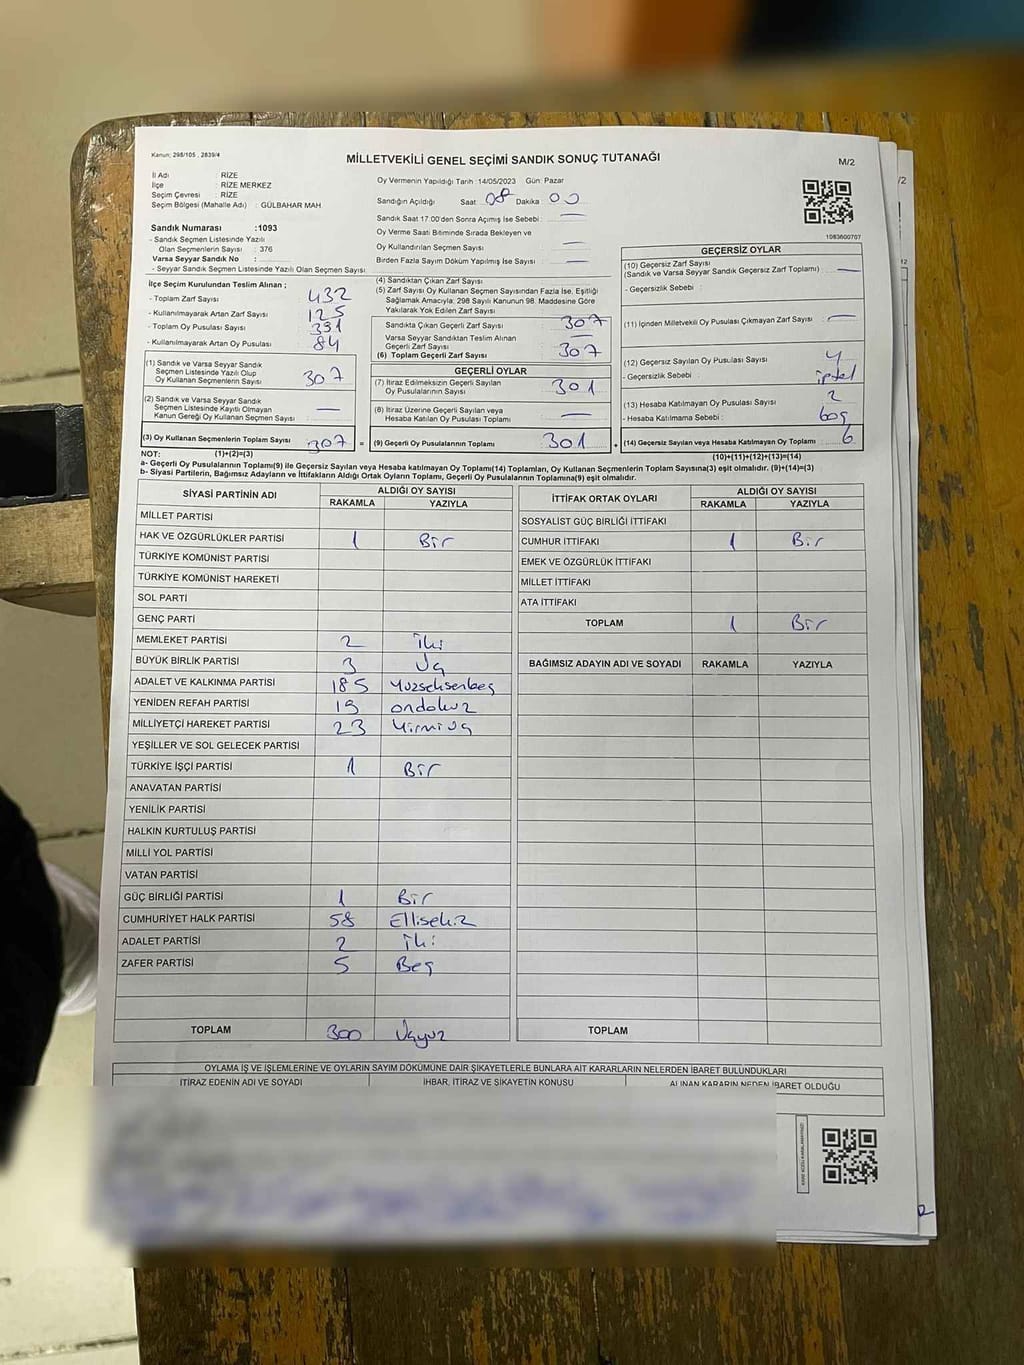 Kanun; 298/105 , 2839/4
MİLLETVEKİLİ GENEL SEÇİMİ SANDIK SONUÇ TUTANAĞI
M/2
İl Adı : RİZE
İlçe : RİZE MERKEZ
Seçim Çevresi : RİZE
Seçim Bölgesi (Mahalle Adı) : GÜLBAHAR MAH
Sandık Numarası :1093
- Sandık Seçmen Listesinde Yazılı
Olan Seçmenlerin Sayısı : 376
Varsa Seyyar Sandık No :
- Seyyar Sandık Seçmen Listesinde Yazılı Olan Seçmen Sayısı
İlçe Seçim Kurulundan Teslim Alınan ;
- Toplam Zarf Sayısı : 432
- Kullanılmayarak Artan Zarf Sayısı : 125
- Toplam Oy Pusulası Sayısı : 391
- Kullanılmayarak Artan Oy Pusulası : 84
(1) Sandık ve Varsa Seyyar Sandık
Seçmen Listesinde Yazılı Olup
Oy Kullanan Seçmenlerin Sayısı : 307
(2) Sandık ve Varsa Seyyar Sandık
Seçmen Listesinde Kayıtlı Olmayan
Kanun Gereği Oy Kullanan Seçmen Sayısı : —
(3) Oy Kullanan Seçmenlerin Toplam Sayısı : 307 =
Oy Vermenin Yapıldığı Tarih :14/05/2023 Gün: Pazar
Sandığın Açıldığı Saat 08 Dakika 00
Sandık Saat 17:00'den Sonra Açımış İse Sebebi : —
Oy Verme Saati Bitiminde Sırada Bekleyen ve
Oy Kullandırılan Seçmen Sayısı : —
Birden Fazla Sayım Döküm Yapılmış İse Sayısı : —
(4) Sandıktan Çıkan Zarf Sayısı
(5) Zarf Sayısı Oy Kullanan Seçmen Sayısından Fazla İse, Eşitliği
Sağlamak Amacıyla; 298 Sayılı Kanunun 98. Maddesine Göre
Yakılarak Yok Edilen Zarf Sayısı :
Sandıkta Çıkan Geçerli Zarf Sayısı : 307
Varsa Seyyar Sandıktan Teslim Alınan
Geçerli Zarf Sayısı : —
(6) Toplam Geçerli Zarf Sayısı : 307
GEÇERLİ OYLAR
(7) İtiraz Edilmeksizin Geçerli Sayılan
Oy Pusulalarının Sayısı : 301
(8) İtiraz Üzerine Geçerli Sayılan veya
Hesaba Katılan Oy Pusulası Toplamı : —
(9) Geçerli Oy Pusulalarının Toplamı : 301 +
1083600707
GEÇERSİZ OYLAR
(10) Geçersiz Zarf Sayısı
(Sandık ve Varsa Seyyar Sandık Geçersiz Zarf Toplamı) : —
- Geçersizlik Sebebi :
(11) İçinden Milletvekili Oy Pusulası Çıkmayan Zarf Sayısı : —
(12) Geçersiz Sayılan Oy Pusulası Sayısı : 4
- Geçersizlik Sebebi : iptal
(13) Hesaba Katılmayan Oy Pusulası Sayısı : 2
- Hesaba Katılmama Sebebi : boş
(14) Geçersiz Sayılan veya Hesaba Katılmayan Oy Toplamı : 6
NOT: (1)+(2)=(3)
(10)+(11)+(12)+(13)=(14)
a- Geçerli Oy Pusulalarının Toplamı(9) ile Geçersiz Sayılan veya Hesaba katılmayan Oy Toplamı(14) Toplamları, Oy Kullanan Seçmenlerin Toplam Sayısına(3) eşit olmalıdır. (9)+(14)=(3)
b- Siyasi Partilerin, Bağımsız Adayların ve İttifakların Aldığı Ortak Oyların Toplamı, Geçerli Oy Pusulasının Toplamına(9) eşit olmalıdır.
SİYASİ PARTİNİN ADI ALDIĞI OY SAYISI
RAKAMLA YAZIYLA
MİLLET PARTİSİ
HAK VE ÖZGÜRLÜKLER PARTİSİ 1 Bir
TÜRKİYE KOMÜNİST PARTİSİ
TÜRKİYE KOMÜNİST HAREKETİ
SOL PARTİ
GENÇ PARTİ
MEMLEKET PARTİSİ 2 İki
BÜYÜK BİRLİK PARTİSİ 3 Üç
ADALET VE KALKINMA PARTİSİ 185 Yüzseksenbeş
YENİDEN REFAH PARTİSİ 19 ondokuz
MİLLİYETÇİ HAREKET PARTİSİ 23 Yirmiüç
YEŞİLLER VE SOL GELECEK PARTİSİ
TÜRKİYE İŞÇİ PARTİSİ 1 Bir
ANAVATAN PARTİSİ
YENİLİK PARTİSİ
HALKIN KURTULUŞ PARTİSİ
MİLLİ YOL PARTİSİ
VATAN PARTİSİ
GÜÇ BİRLİĞİ PARTİSİ 1 Bir
CUMHURİYET HALK PARTİSİ 58 Ellisekiz
ADALET PARTİSİ 2 İki
ZAFER PARTİSİ 5 Beş
TOPLAM 300 Üçyüz
İTTİFAK ORTAK OYLARI ALDIĞI OY SAYISI
RAKAMLA YAZIYLA
SOSYALİST GÜÇ BİRLİĞİ İTTİFAKI
CUMHUR İTTİFAKI 1 Bir
EMEK VE ÖZGÜRLÜK İTTİFAKI
MİLLET İTTİFAKI
ATA İTTİFAKI
TOPLAM 1 Bir
BAĞIMSIZ ADAYIN ADI VE SOYADI RAKAMLA YAZIYLA
TOPLAM
OYLAMA İŞ VE İŞLEMLERİNE VE OYLARIN SAYIM DÖKÜMÜNE DAİR ŞİKAYETLERLE BUNLARA AİT KARARLARIN NELERDEN İBARET BULUNDUKLARI
İTİRAZ EDENİN ADI VE SOYADI İHBAR, İTİRAZ VE ŞİKAYETİN KONUSU ALINAN KARARIN NEDEN İBARET OLDUĞU